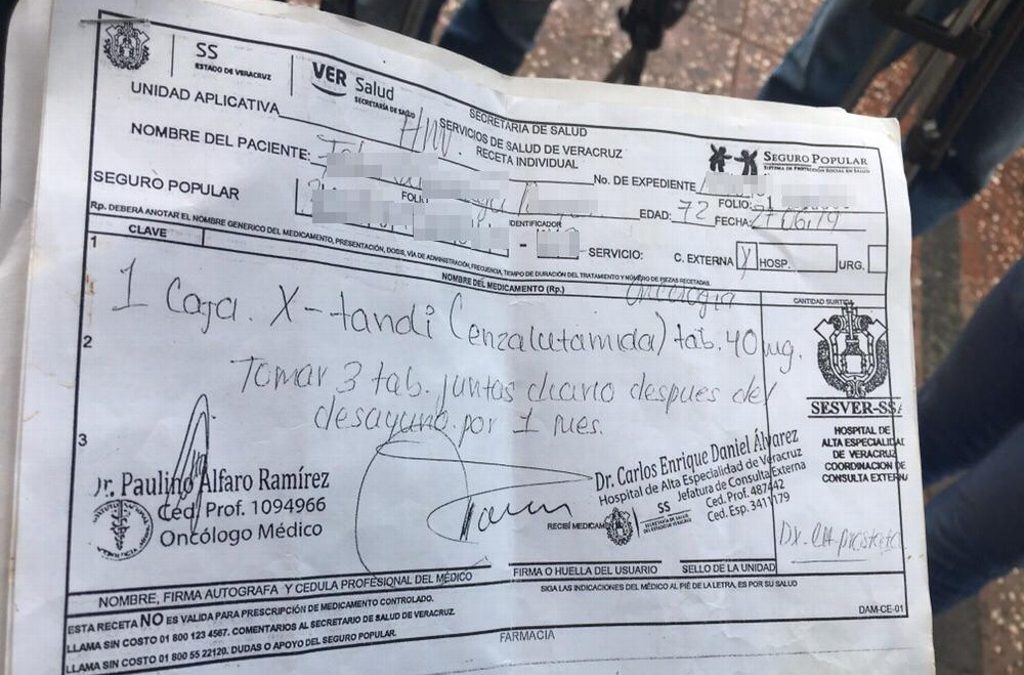 SS
ESTADO DE VERACRUZ
VER Salud
SECRETARÍA DE SALUD
SECRETARIA DE SALUD
SERVICIOS DE SALUD DE VERACRUZ
RECETA INDIVIDUAL
SEGURO POPULAR
SISTEMA DE PROTECCIÓN SOCIAL EN SALUD
UNIDAD APLICATIVA
NOMBRE DEL PACIENTE:
No. DE EXPEDIENTE
SEGURO POPULAR
FOLIO:
IDENTIFICADOR
EDAD: 72
FECHA: 27/06/19
SERVICIO: C. EXTERNA HOSP. URG.
Rp. DEBERÁ ANOTAR EL NOMBRE GENERICO DEL MEDICAMENTO, PRESENTACIÓN, DOSIS, VÍA DE ADMINISTRACIÓN, FRECUENCIA, TIEMPO DE DURACIÓN DEL TRATAMIENTO Y NÚMERO DE PIEZAS RECETADAS.
Oncologia
CLAVE
NOMBRE DEL MEDICAMENTO (Rp.)
CANTIDAD SURTIDA
1
1 Caja. X-tandi (enzalutamida) tab. 40 mg.
2
Tomar 3 tab. juntas diario despues del
desayuno. por 1 mes.
3
SESVER-SSA
HOSPITAL DE
ALTA ESPECIALIDAD
DE VERACRUZ
COORDINACION DE
CONSULTA EXTERNA
Dr. Paulino Alfaro Ramírez
Ced. Prof. 1094966
Oncólogo Médico
Dr. Carlos Enrique Daniel Álvarez
Hospital de Alta Especialidad de Veracruz
Jefatura de Consulta Externa
SS
Ced. Prof. 487442
Ced. Esp. 3411179
RECIBÍ MEDICAM
Dx. CA prostata
NOMBRE, FIRMA AUTOGRAFA Y CEDULA PROFESIONAL DEL MÉDICO
FIRMA O HUELLA DEL USUARIO
SELLO DE LA UNIDAD
SIGA LAS INDICACIONES DEL MÉDICO AL PIE DE LA LETRA, ES POR SU SALUD
ESTA RECETA NO ES VALIDA PARA PRESCRIPCIÓN DE MEDICAMENTO CONTROLADO.
DAM-CE-01
LLAMA SIN COSTO 01 800 123 4567. COMENTARIOS AL SECRETARIO DE SALUD DE VERACRUZ.
LLAMA SIN COSTO 01 800 55 22120. DUDAS O APOYO DEL SEGURO POPULAR.
FARMACIA